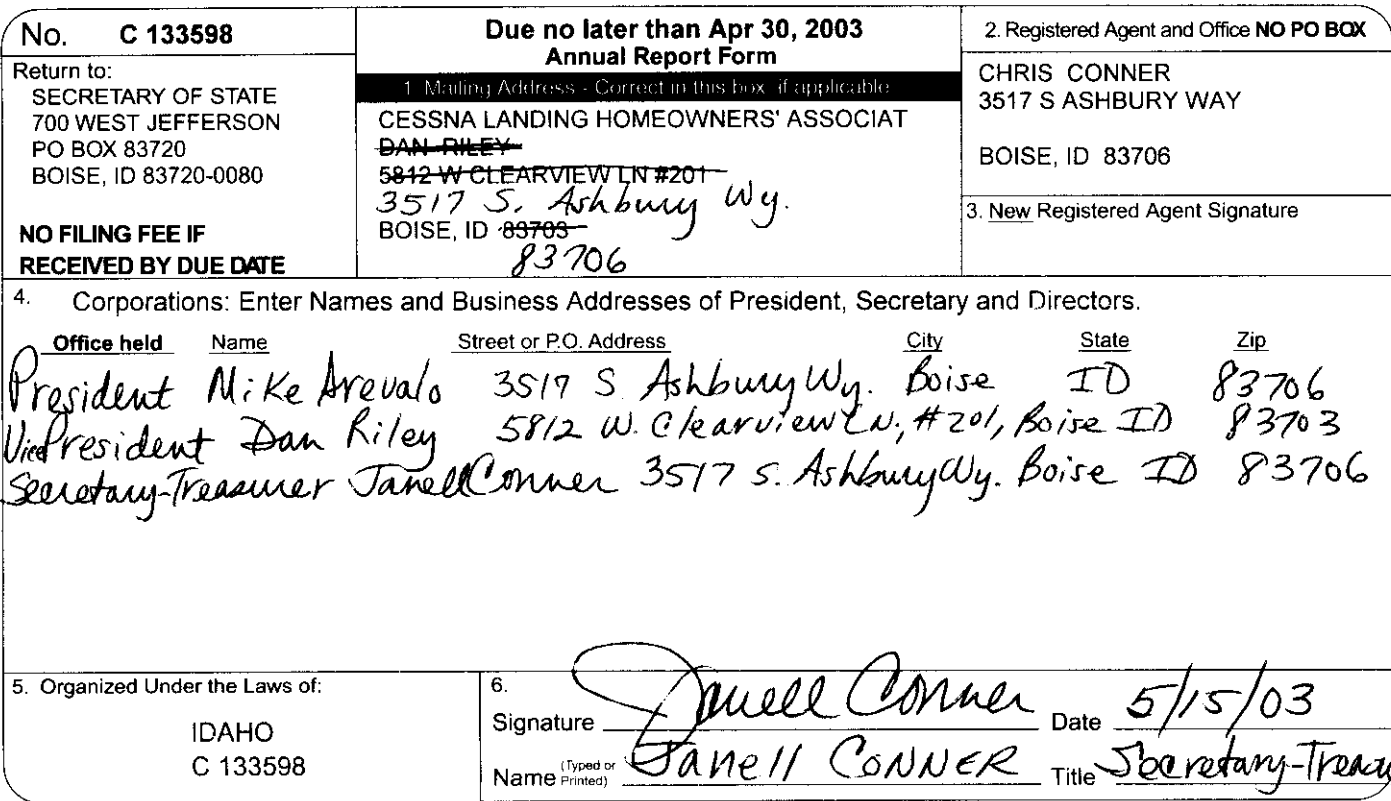 No. C 133598
Return to:
SECRETARY OF STATE
700 WEST JEFFERSON
PO BOX 83720
BOISE, ID 83720-0080
NO FILING FEE IF
RECEIVED BY DUE DATE
Due no later than Apr 30, 2003
Annual Report Form
1. Mailing Address - Correct in this box, if applicable
CESSNA LANDING HOMEOWNERS' ASSOCIAT
DAN RILEY
5812 W CLEARVIEW LN #201
3517 S. Ashbury Wy.
BOISE, ID 83703
83706
2. Registered Agent and Office NO PO BOX
CHRIS CONNER
3517 S ASHBURY WAY
BOISE, ID 83706
3. New Registered Agent Signature
4. Corporations: Enter Names and Business Addresses of President, Secretary and Directors.
Office held Name Street or P.O. Address City State Zip
President Mike Arevalo 3517 S. Ashbury Wy. Boise ID 83706
Vice President Dan Riley 5812 W. Clearview LN, #201, Boise ID 83703
Secretary-Treasurer Janell Conner 3517 S. Ashbury Wy. Boise ID 83706
5. Organized Under the Laws of:
IDAHO
C 133598
6.
Signature Janell Conner Date 5/15/03
Name (Typed or Printed) Janell CONNER Title Secretary-Treasu